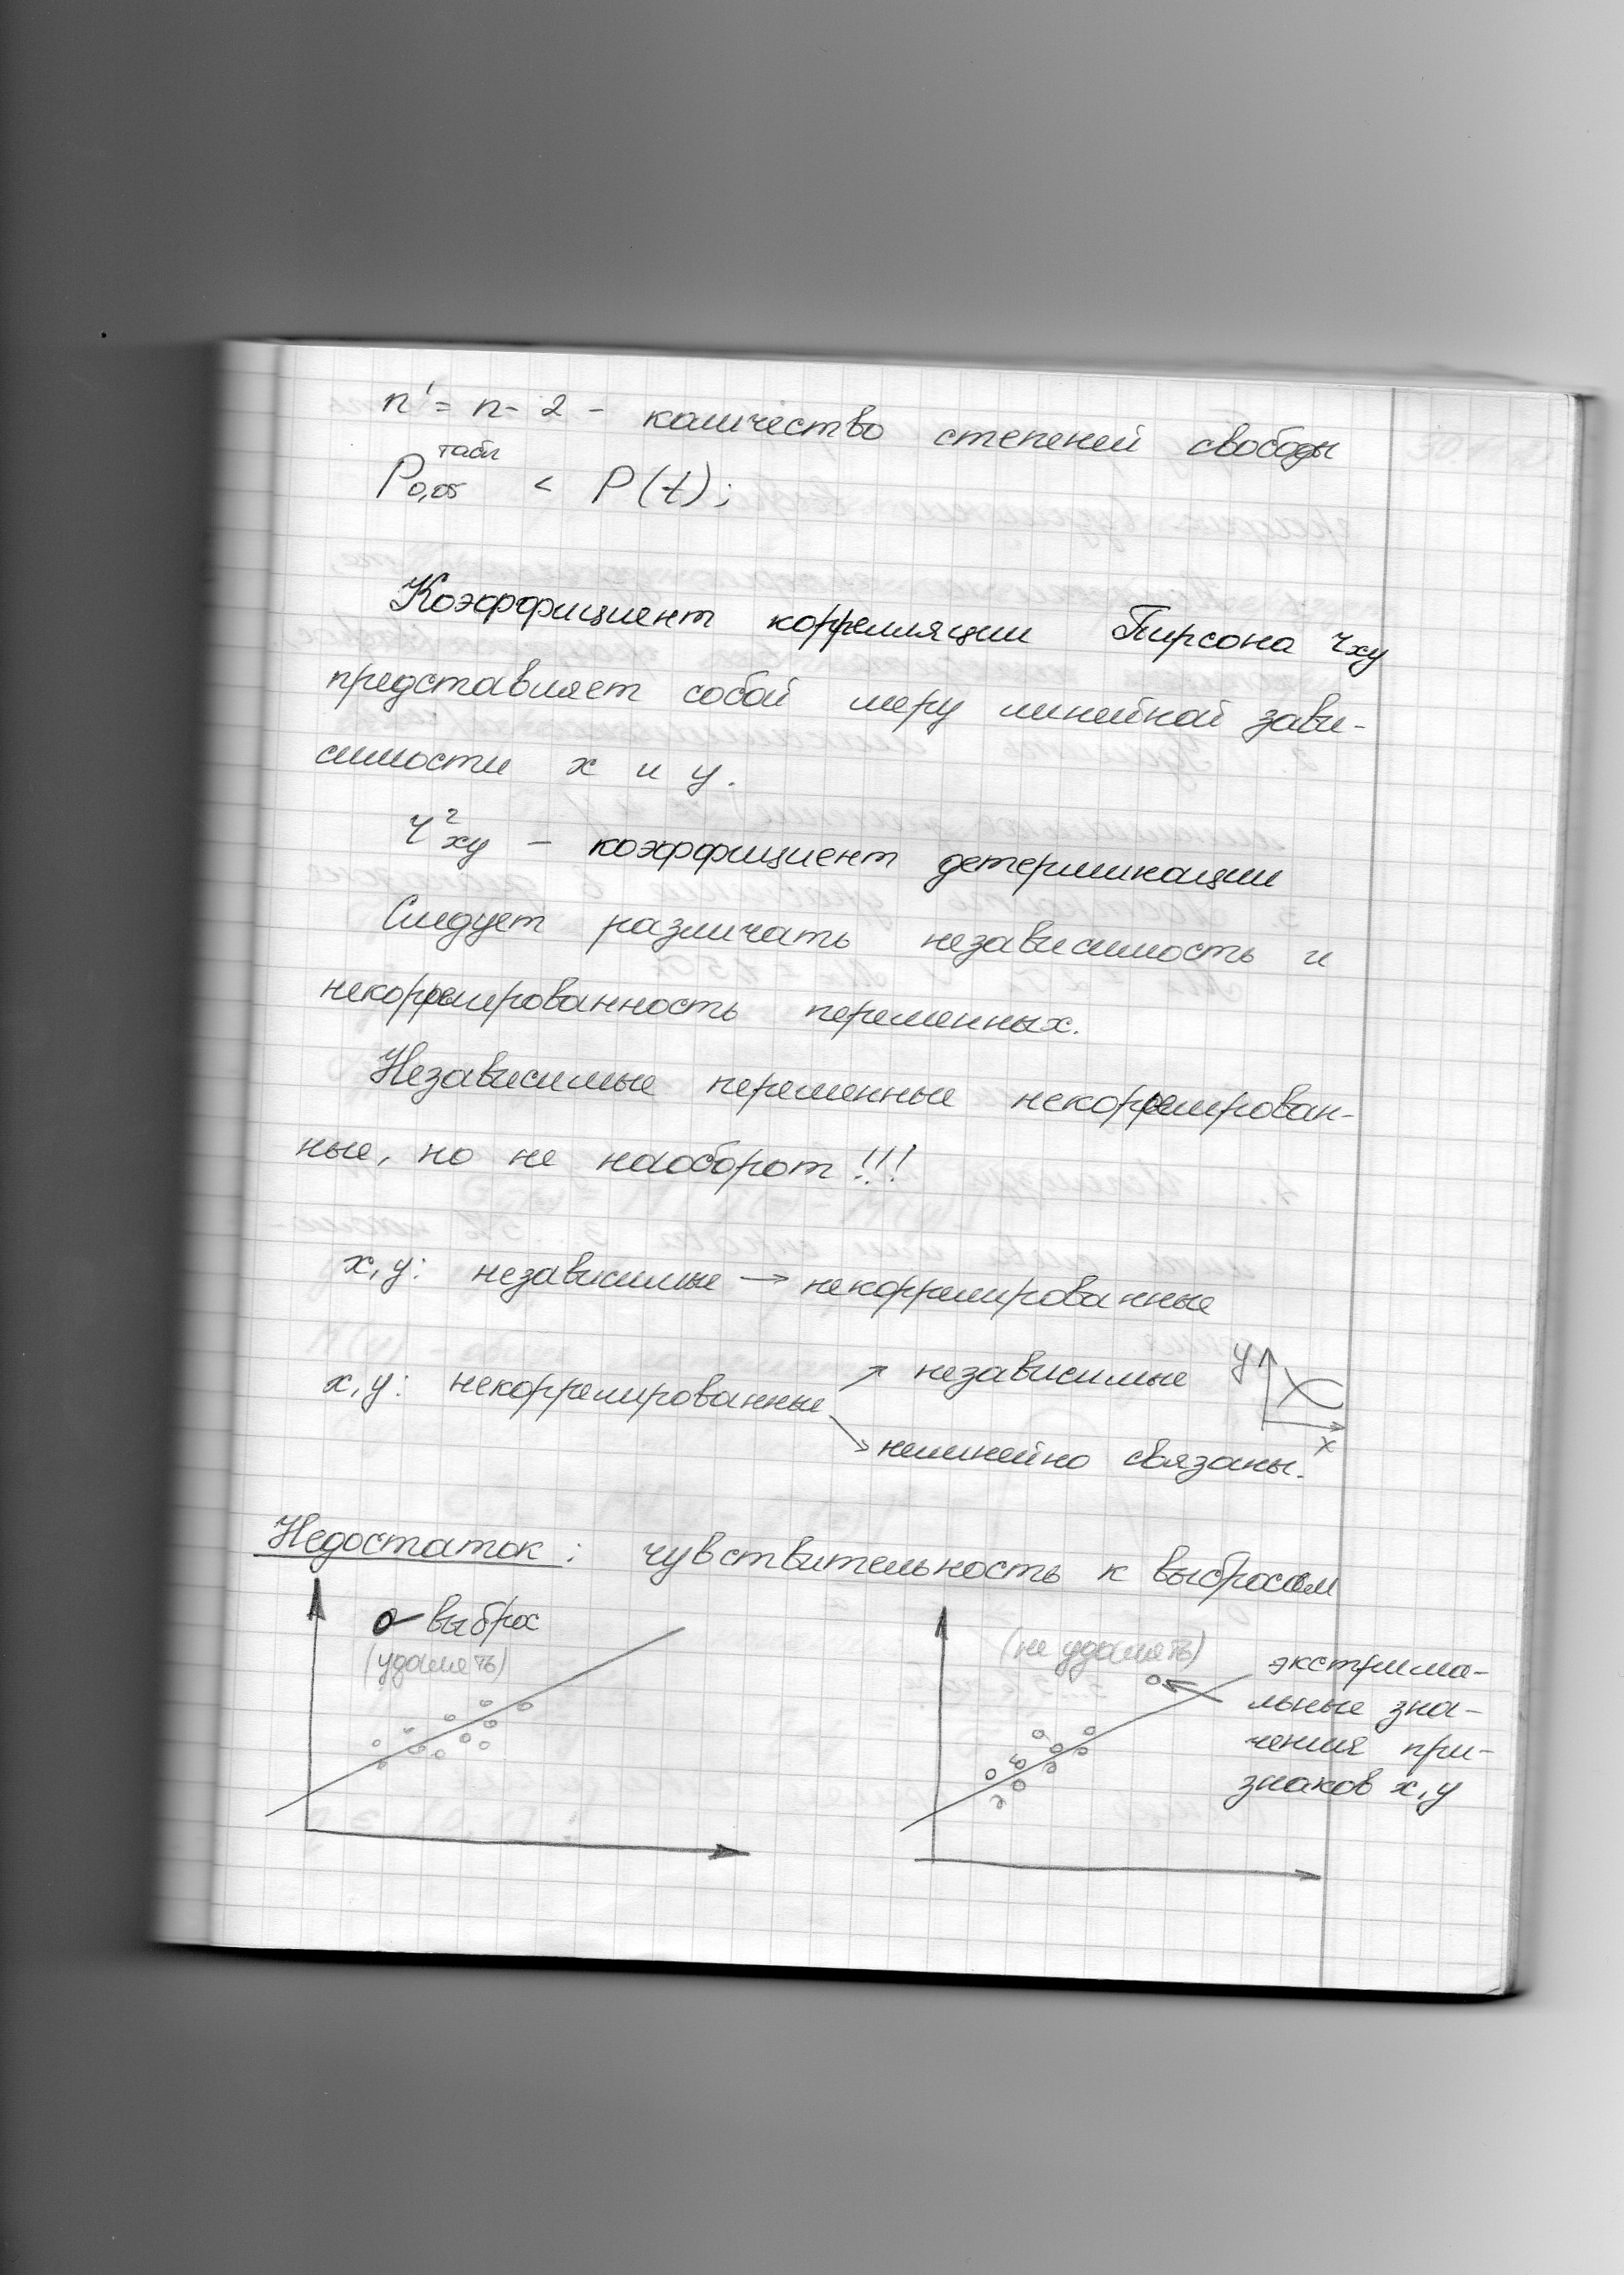 n' = n - 2 - количество степеней свободы
P табл 0,05 < P(t);
Коэффициент корреляции Пирсона rxy
представляет собой меру линейной зави-
симости x и y.
r²xy - коэффициент детерминации
Следует различать независимость и
некоррелированность переменных.
Независимые переменные некоррелирован-
ные, но не наоборот!!!
x, y: независимые → некоррелированные
x, y: некоррелированные ↗ независимые
↘ нелинейно связаны.
y
x
Недостаток: чувствительность к выбросам
выброс
(удалять)
(не удалять)
экстрима-
льные зна-
чения при-
знаков x, y